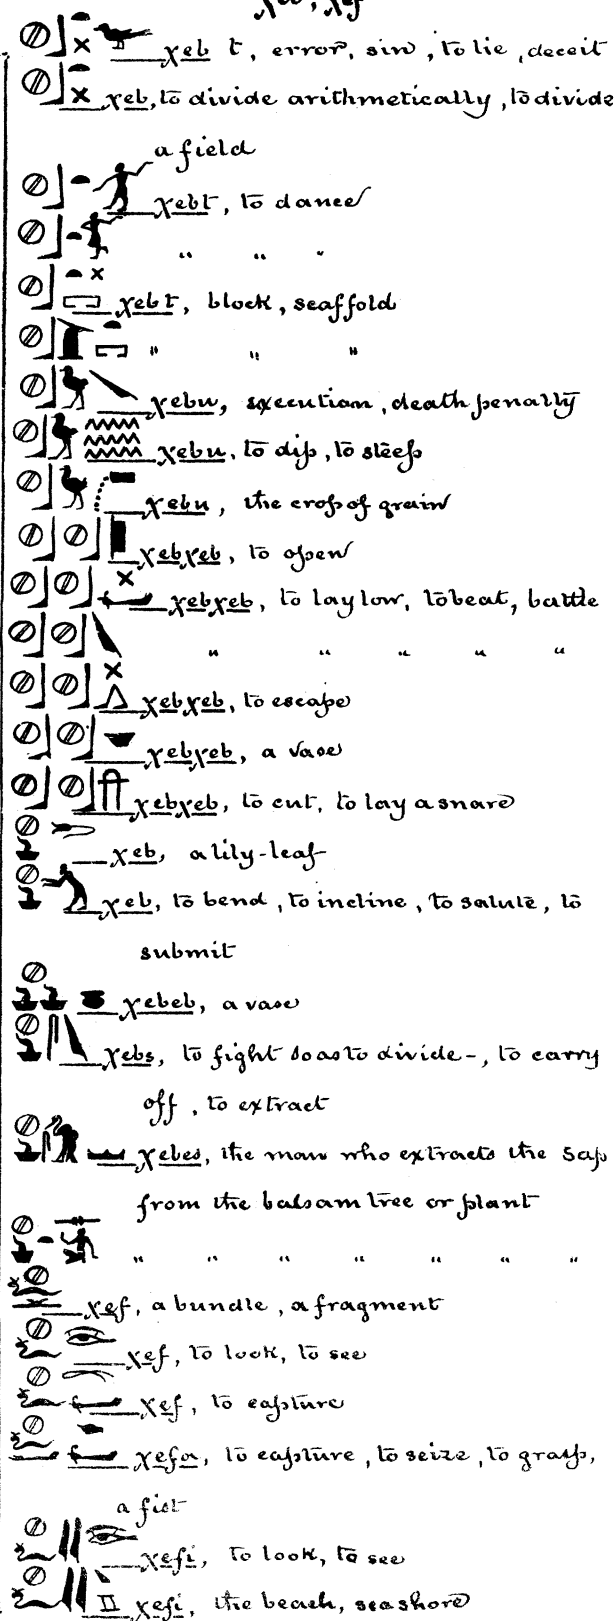 χeb, χef
χeb t, error, sin, to lie, deceit
χeb, to divide arithmetically, to divide
a field
χebt, to dance
" " "
χebt, block, scaffold
" " "
χebu, execution, death penalty
χebu, to dip, to steep
χebu, the crop of grain
χebχeb, to open
χebχeb, to lay low, to beat, battle
" " " " "
χebχeb, to escape
χebχeb, a vase
χebχeb, to cut, to lay a snare
χeb, a lily-leaf
χeb, to bend, to incline, to salute, to
submit
χebeb, a vase
χebs, to fight so as to divide-, to carry
off, to extract
χebes, the man who extracts the sap
from the balsam tree or plant
" " " " " " "
χef, a bundle, a fragment
χef, to look, to see
χef, to capture
χefa, to capture, to seize, to grasp,
a fist
χefi, to look, to see
χefi, the beach, seashore